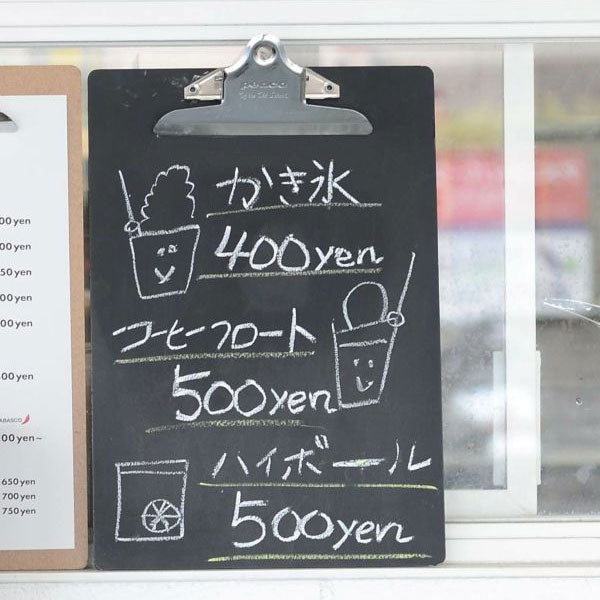 00 yen
00 yen
50 yen
00 yen
00 yen
00 yen
ABASCO
00 yen~
650 yen
700 yen
750 yen
penco
かき氷
400yen
コーヒーフロート
500yen
ハイボール
500yen